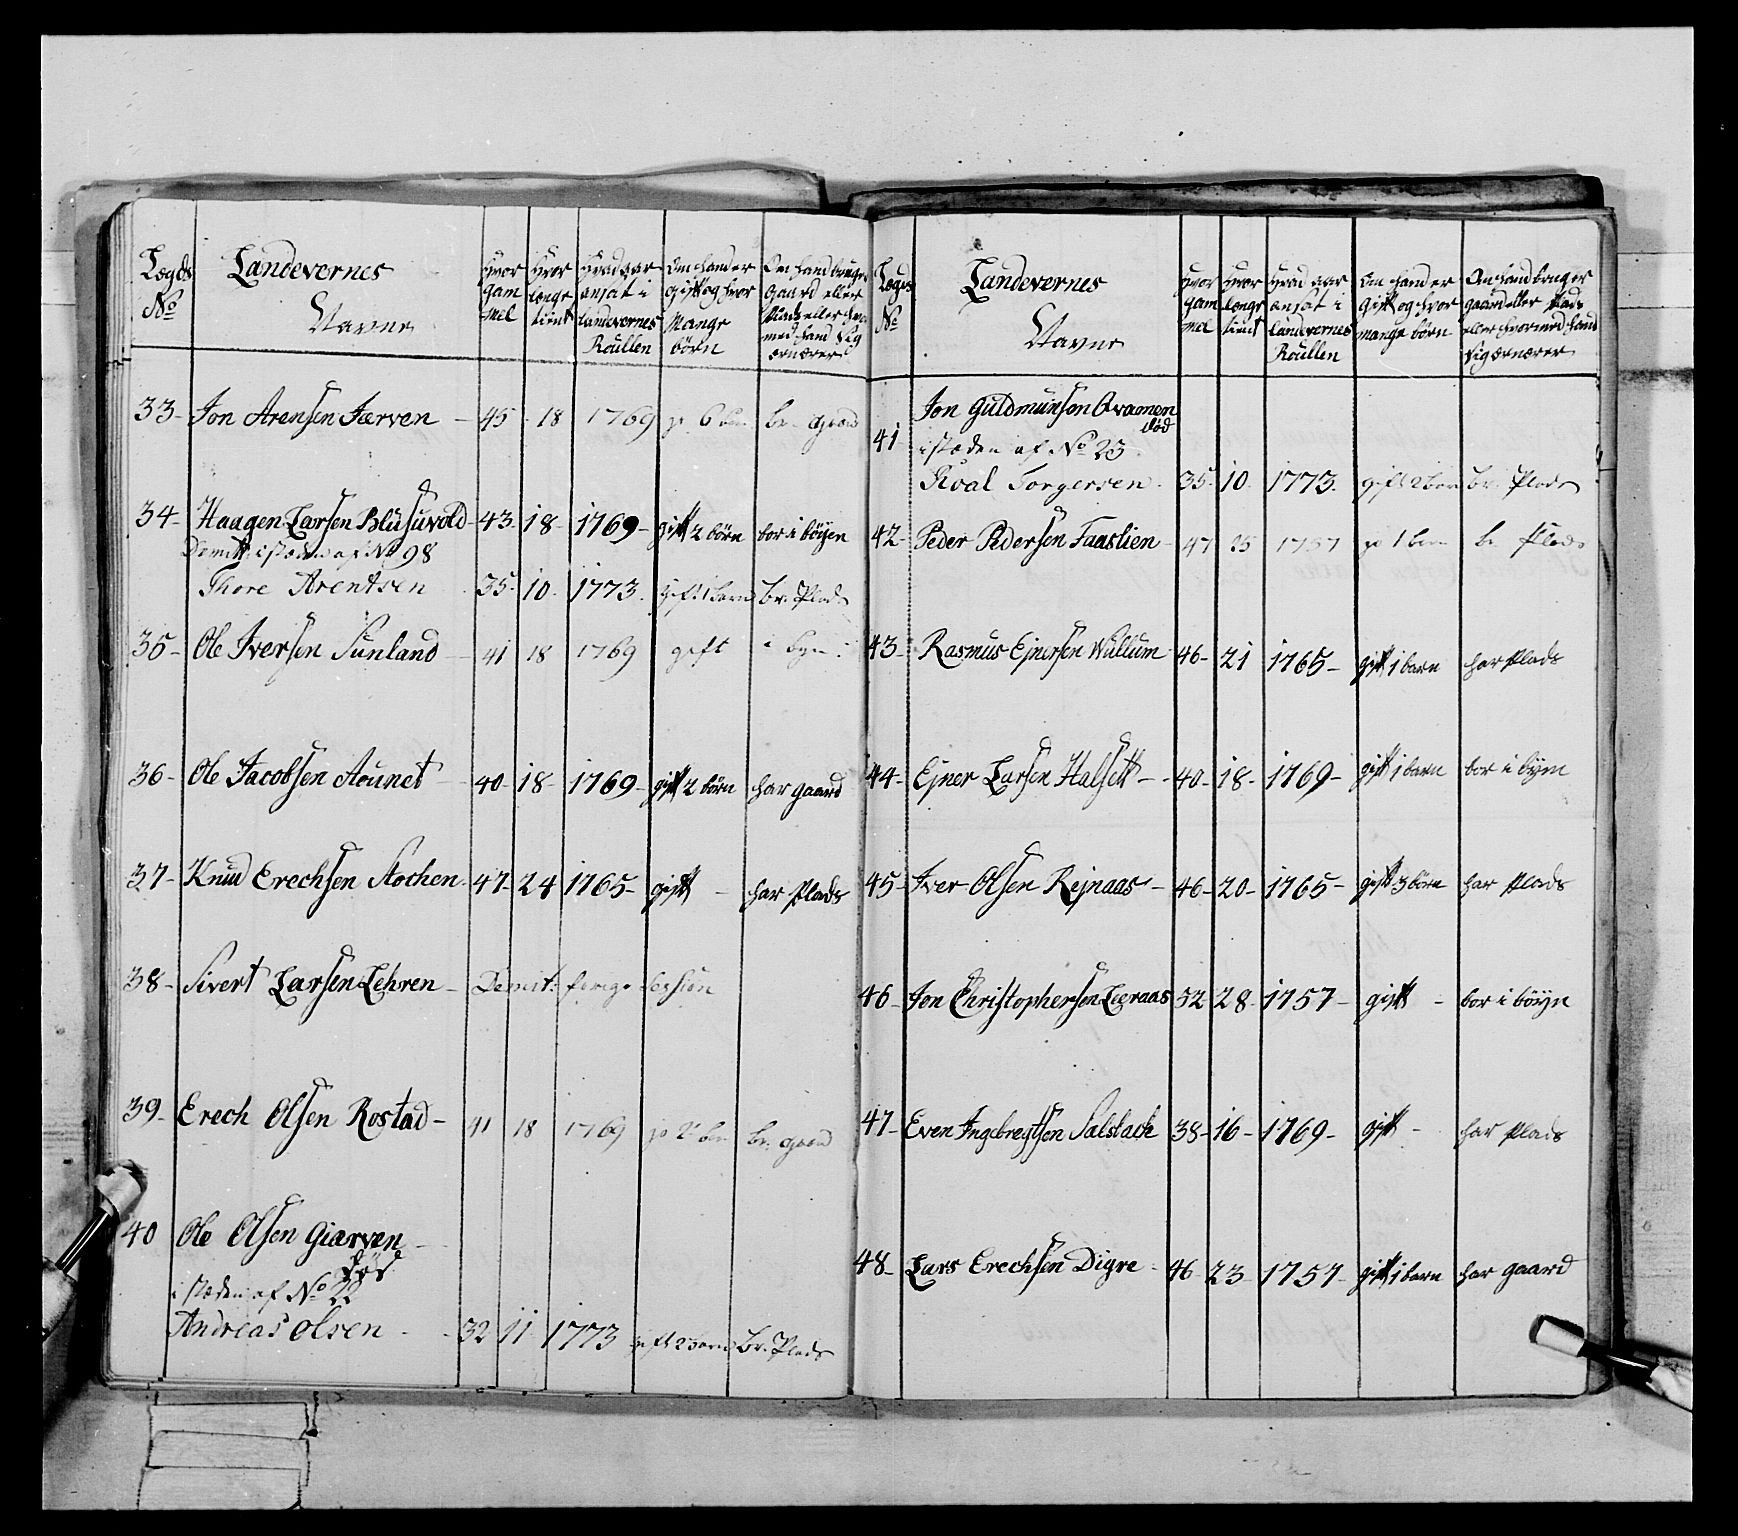 Lægds No
Landevernes Navne
Hvor gam mel
Hvor længe tient
Hvad aar ansat i Landevernes Roullen
Om hand er gift og hvor Mange børn
Om hand bruger gaard eller Plads eller hvor med hand sig ernærer
33- Jon Arensen Færven - 45 - 18 1769 6 br. gaard
34- Haagen Larsen Blusuvold - 43- 18- 1769- gift 2 børn bor i bøyen
Demitt: i stæden af No 98
Thore Arentsen 35- 10. 1773. gift 1 barn br. Plads
35- Ole Iversen Sunland 41 18 1769 gift i byen
36- Ole Jacobsen Aounet 40- 18- 1769- gift 2 børn har gaard
37- Knud Erechsen Stochen. 47- 24 1765- gift - har Plads
38- Sivert Larsen Lehren - Demit: forige Session
39- Erech Olsen Rostad - 41 18 1769 br. gaard
40 Ole Olsen Giærven
død
i stæden af No 22
Andreas Olsen - - 32 11 1773 gift 2 barn br. Plads
Lægds No
Landevernes Navne
Hvor gam mel
Hvor længe tient
Hvad aar ansat i Landevernes Roullen
Om hand er Gift og hvor mange børn
Om hand bruger gaard eller Plads eller hvormed hand sig ernærer
Jon Guldmunsen Qvamen
død
41 i stæden af No 23
Sival Torgersen. 35- 10. 1773. gift 2 barn br. Plads
42- Peder Pedersen Faaslien - 47 25 1757 1 barn br. Plads
43- Rasmus Ejnersen Wullum 46- 21 1765- gift 1 barn har Plads
44- Ejner Larsen Halsett - - 40- 18- 1769- gift 1 barn bor i byen
45- Iver Olsen Rejnaas - 46- 20- 1765- gift 3 børn har Plads
46- Jon Christophersen Læraas 52 28- 1757- gift - bor i bøyen
47- Even Ingebregtsen Salstach 38- 16- 1769- gift - har Plads
48- Lars Erechsen Digre - 46 23- 1757- gift 1 barn har gaard